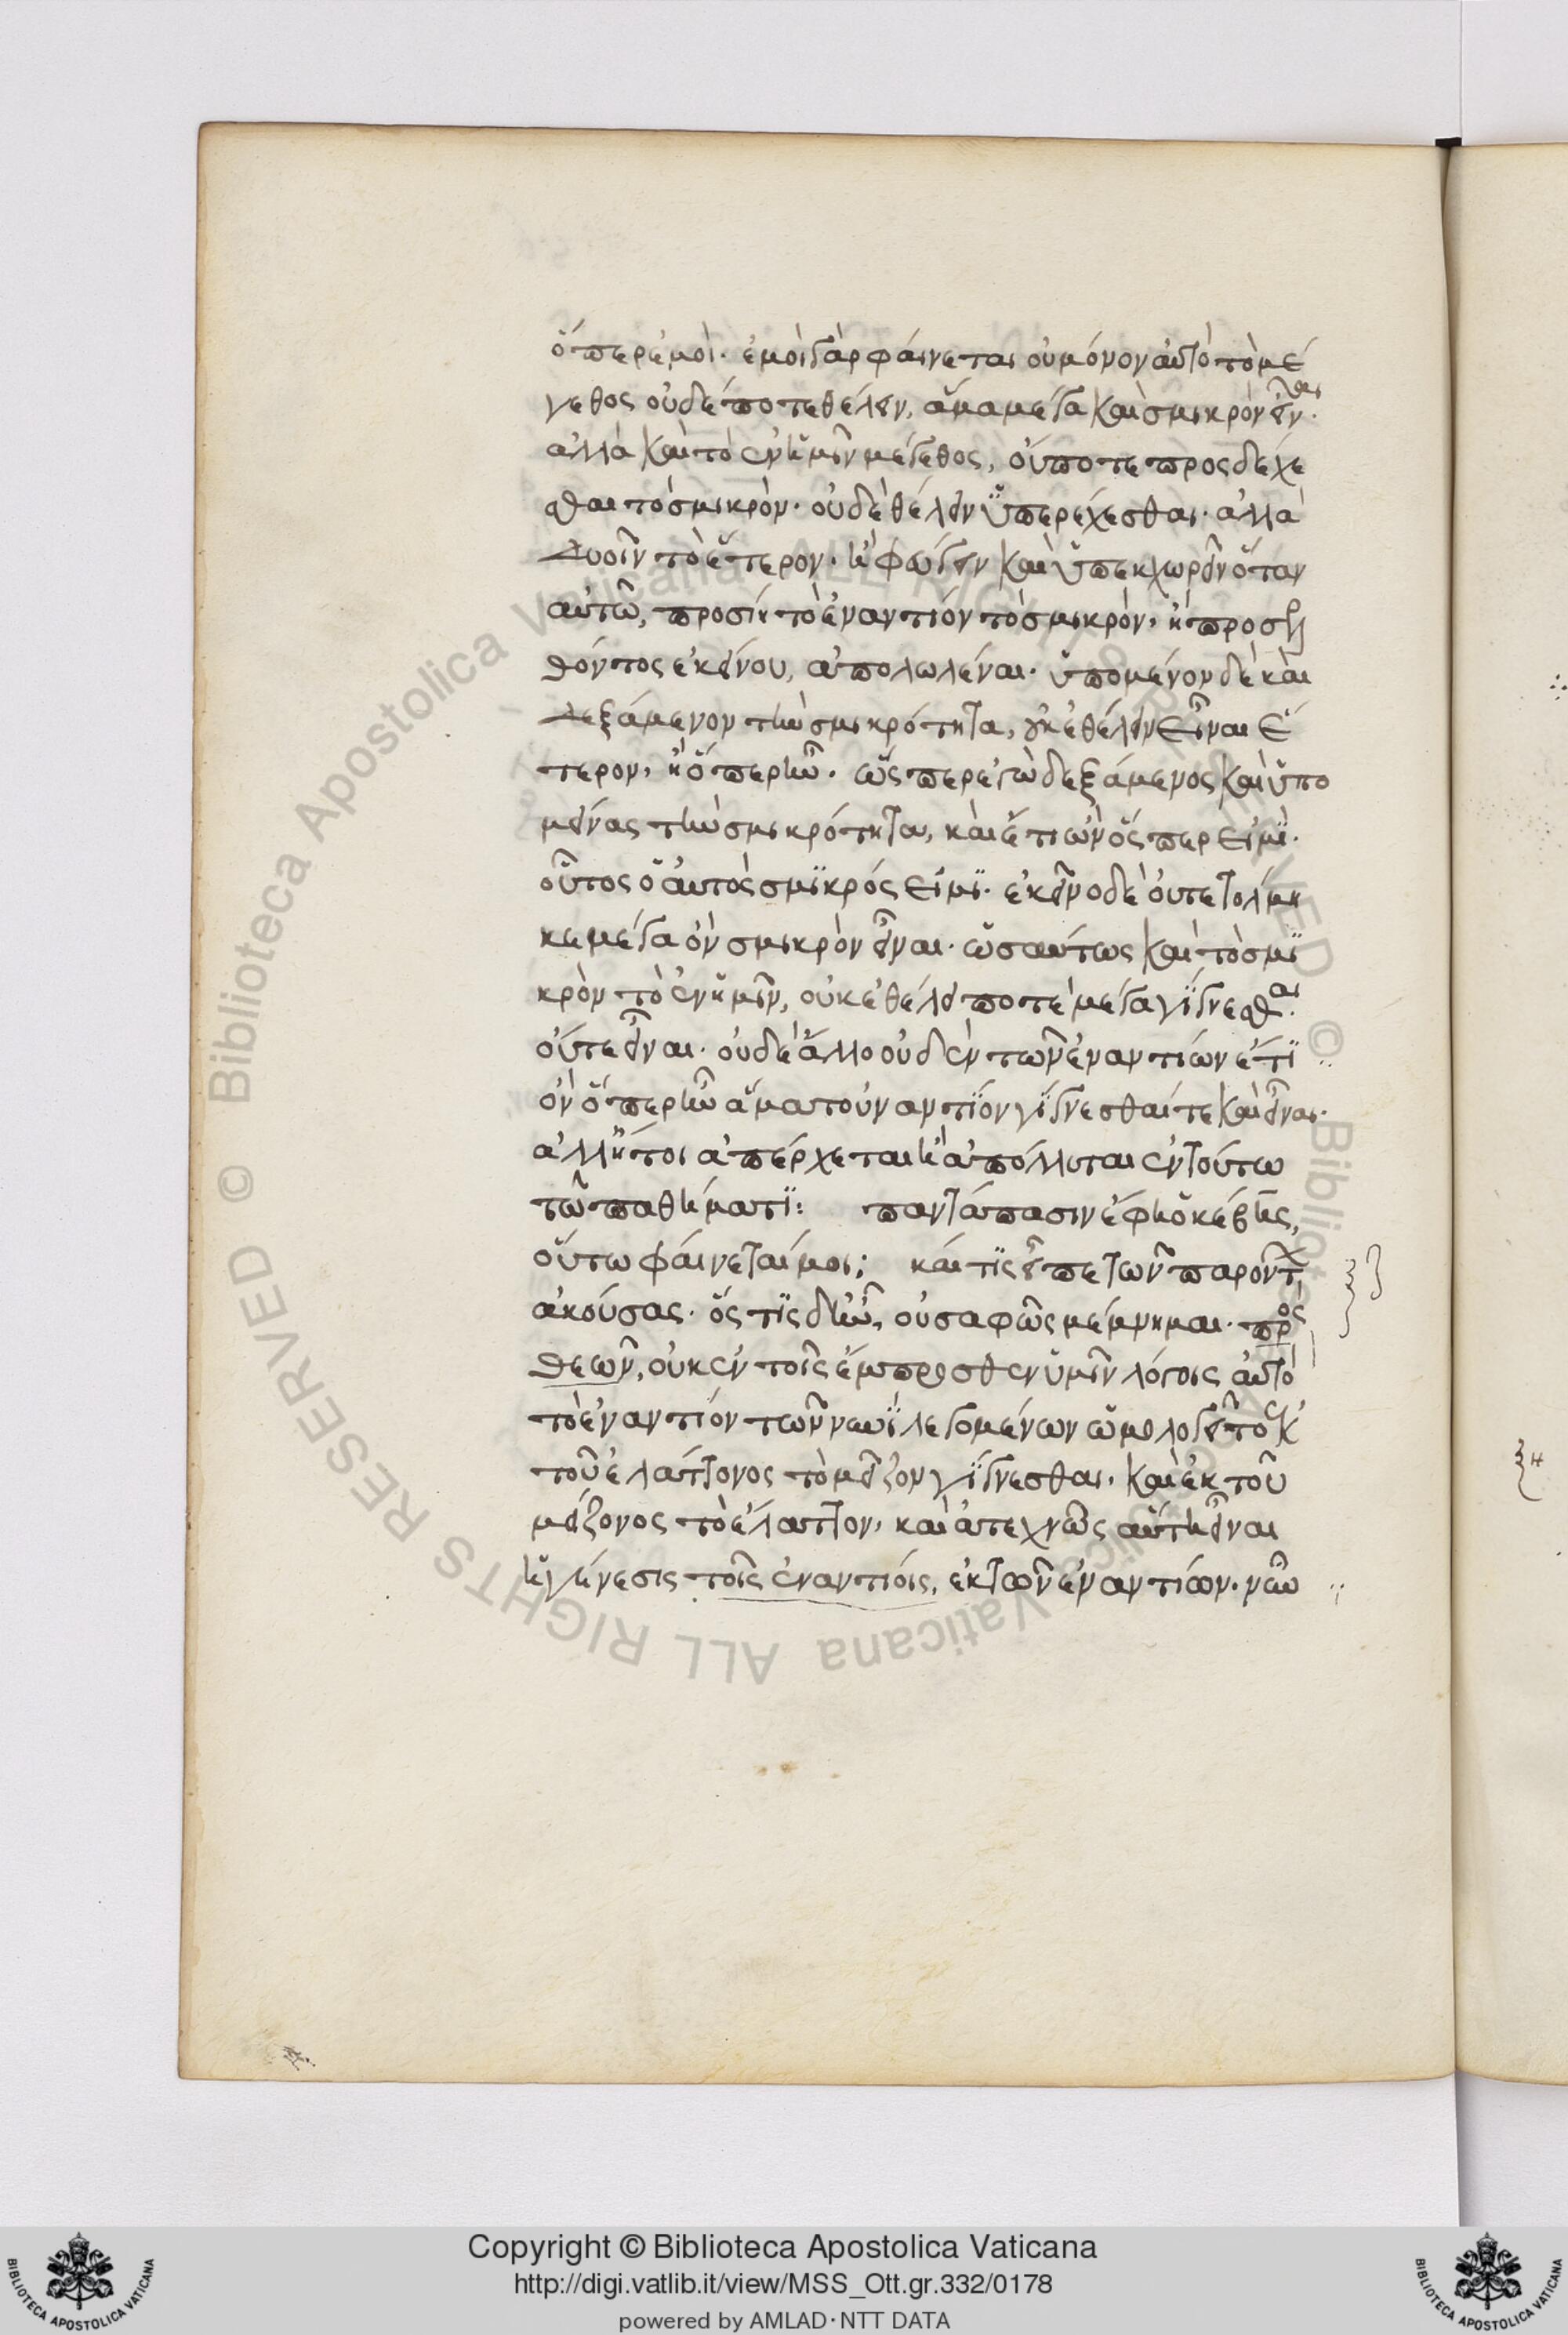 ὅπερ ἐμοὶ· ἐμοὶ γὰρ φάινεται οὐ μόνον ἀυτὸ τὸ μέ
γεθος οὐδέποτε θέλειν, ἅμα μέγα καὶ σμικρὸν εἶναι·
ἀλλὰ καὶ τὸ ἐν ἡμῖν μέγεθος, ὀύποτε προςδέχε
σθαι τὸ σμικρὸν· οὐδὲ θέλειν ὑπερέχεσθαι· ἀλλὰ
δυοῖν τὸ ἕτερον· ἢ φεύγειν καὶ ὑπεκχωρεῖν ὅταν
αὐτῶ, προσίη τὸ ἐναντίον τὸ σμικρὸν, ἢ προσελ
θόντος ἐκείνου, ἀπολωλέναι· ὑπομένον δὲ κὰι
δεξάμενον τὴν σμικρότητα, οὐκ ἐθέλειν εἶναι ἕ
τερον, ἢ ὅπερ ἦν· ὥςπερ ἐγὼ δεξάμενος καὶ ὑπο
μείνας τὴν σμικρότητα, κὰι ἔτι ὢν ὅςπερ εἰμῒ·
οὗτος ὁ ἀυτὸς σμϊκρός εἰμϊ· ἐκεῖνο δὲ ὀυ τετόλμη
κε μέγα ὂν σμικρὸν εἶναι· ὡσαύτως καὶ τὸ σμϊ
κρὸν τὸ ἐν ἡμῖν, οὐκ ἐθέλει ποτὲ μέγα γίγνεσθαι·
ὀύτε εἶναι· ὀυδὲ ἄλλο οὐδὲν τῶν ἐναντίων ἔτϊ
ὂν ὅπερ ἦν ἅμα τοὐναντΐον γΐγνεσθαί τε καὶ εἶναι·
ἀλλ' ἤτοι ἀπέρχεται ἢ ἀπόλλυται ἐν τούτω
τῶ παθήματϊ: παντάπασιν ἔφη ὁ κέβης,
οὕτω φάινεταί μοι; κάι τϊς εἶπε τῶν παρόντων
ἀκούσας· ὅς τϊς δ' ἦν, οὐ σαφῶς μέμνημαι· πρὸς
θεῶν, οὐκ ἐν τοῖς ἔμπροσθεν ὑμῖν λόγοις ἀυτὸ
τὸ ἐναντίον τῶν νυνῒ λεγομένων ὡμολογεῖτο ἐκ
τοῦ ἐλάττονος τὸ μεῖζον γΐγνεσθαι· καὶ ἐκ τοῦ
μείζονος τὸ ἔλαττον, καὶ ἀτεχνῶς αὕτη εἶναι
ἡ γένεσις τοῖς ἐναντίοις, ἐκ τῶν ἐναντίων· νῦν
Copyright © Biblioteca Apostolica Vaticana
http://digi.vatlib.it/view/MSS_Ott.gr.332/0178
powered by AMLAD·NTT DATA